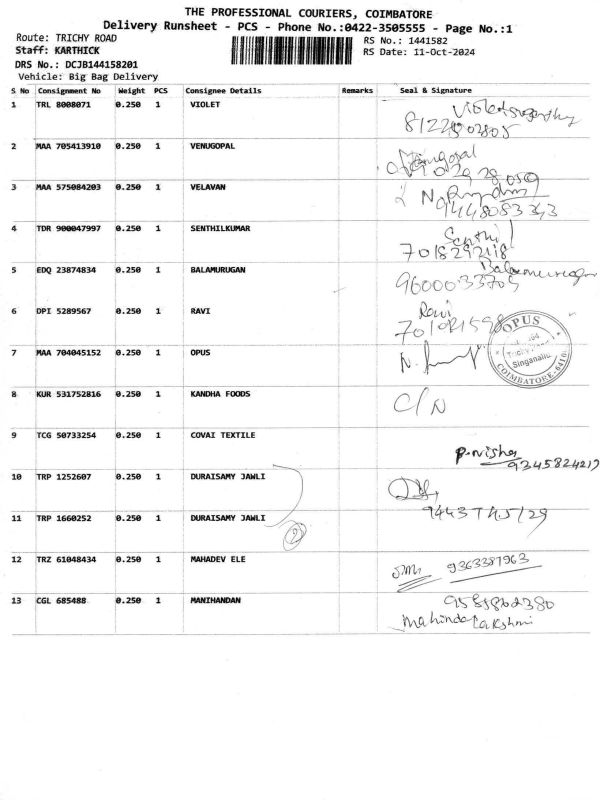 THE PROFESSIONAL COURIERS, COIMBATORE
Delivery Runsheet - PCS - Phone No.:0422-3505555 - Page No.:1
Route: TRICHY ROAD
RS No.: 1441582
Staff: KARTHICK
RS Date: 11-Oct-2024
DRS No.: DCJB144158201
Vehicle: Big Bag Delivery
S No Consignment No Weight PCS Consignee Details Remarks Seal & Signature
1 TRL 8008071 0.250 1 VIOLET
2 MAA 705413910 0.250 1 VENUGOPAL
3 MAA 575084203 0.250 1 VELAVAN
9448083343
4 TDR 900047997 0.250 1 SENTHILKUMAR Senthil
7018292118
5 EDQ 23874834 0.250 1 BALAMURUGAN Balamurugan
9600033705
6 DPI 5289567 0.250 1 RAVI Ravi
OPUS
7 MAA 704045152 0.250 1 OPUS
Singanallur
COIMBATORE
8 KUR 531752816 0.250 1 KANDHA FOODS C/N
9 TCG 50733254 0.250 1 COVAI TEXTILE P. Nisha
9345824217
10 TRP 1252607 0.250 1 DURAISAMY JAWLI
11 TRP 1660252 0.250 1 DURAISAMY JAWLI
2
12 TRZ 61048434 0.250 1 MAHADEV ELE 9363387963
13 CGL 685488 0.250 1 MANIHANDAN 9585862380
Mahinda Lakshmi